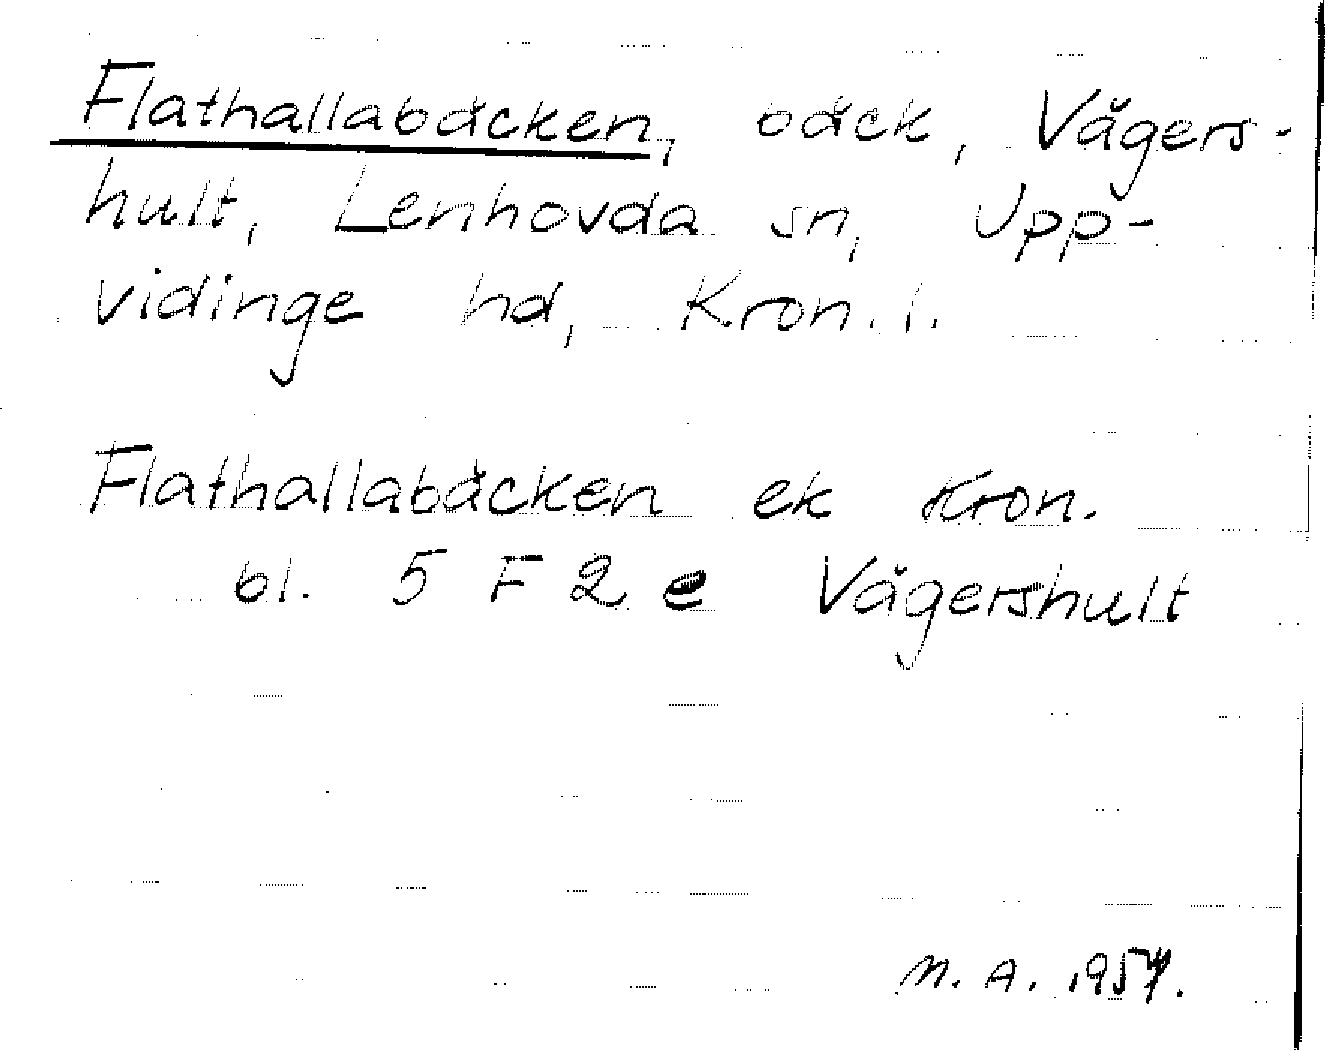 Flathallabäcken, bäck, Vägers-
hult, Lenhovda sn, Upp-
vidinge hd, Kron. l.
Flathallabäcken ek Kron.
bl. 5 F 2 e Vägershult
M. A. 1957.